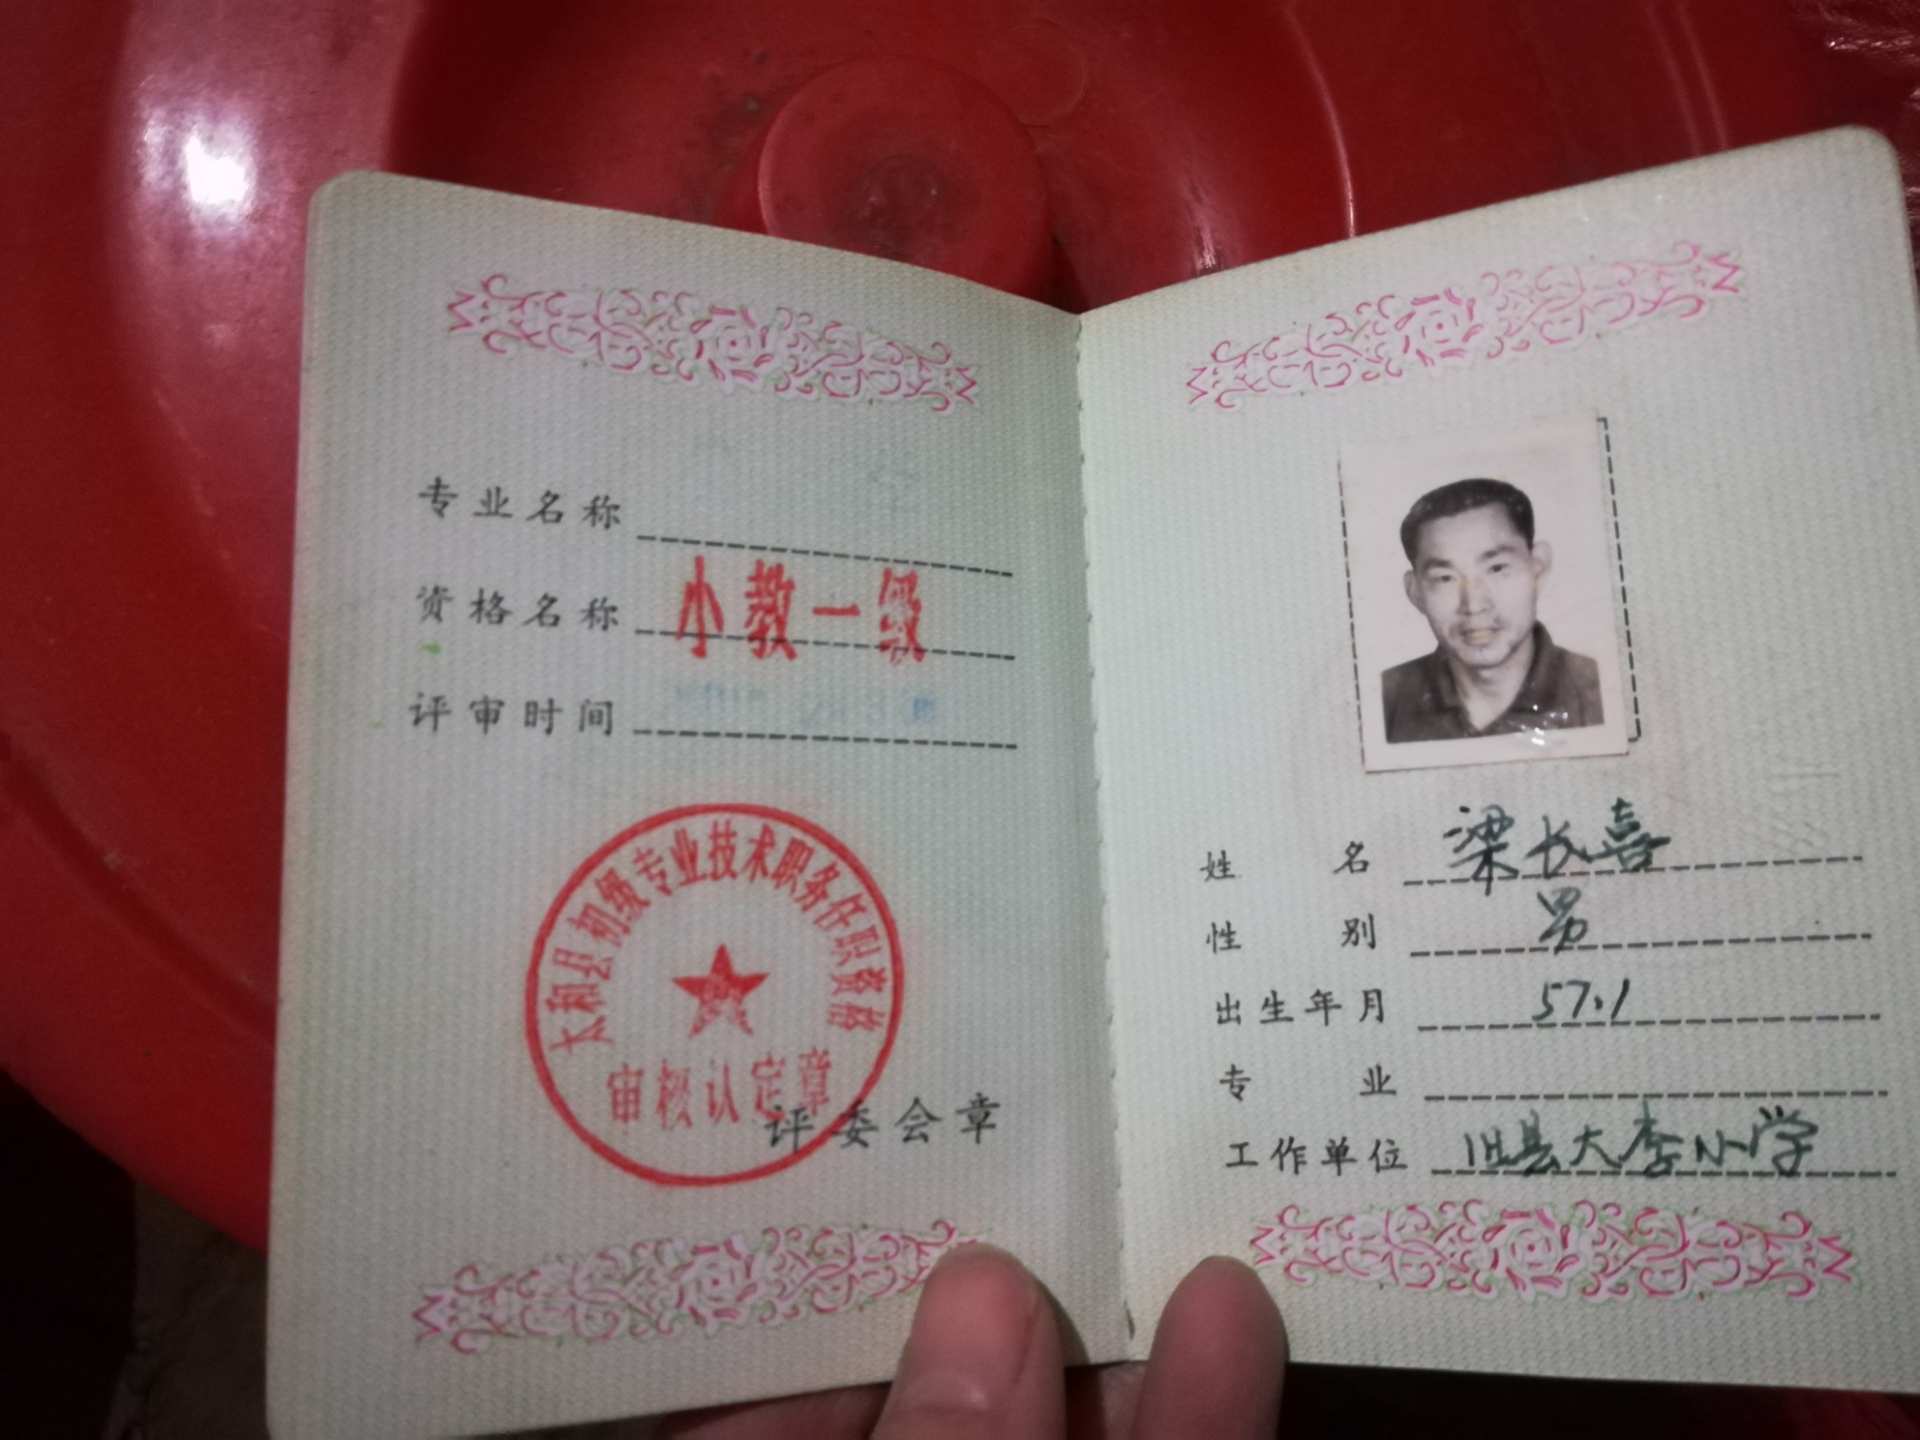 专业名称
资格名称 小教一级
评审时间
太和县初级专业技术职务任职资格
审核认定章
评委会章
姓名 梁长喜
性别 男
出生年月 57.1
专业
工作单位 旧县大李小学